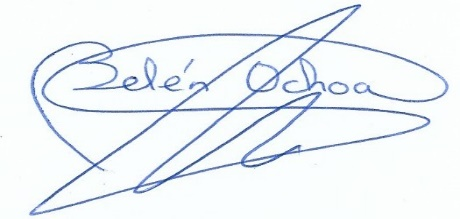 Belén Ochoa